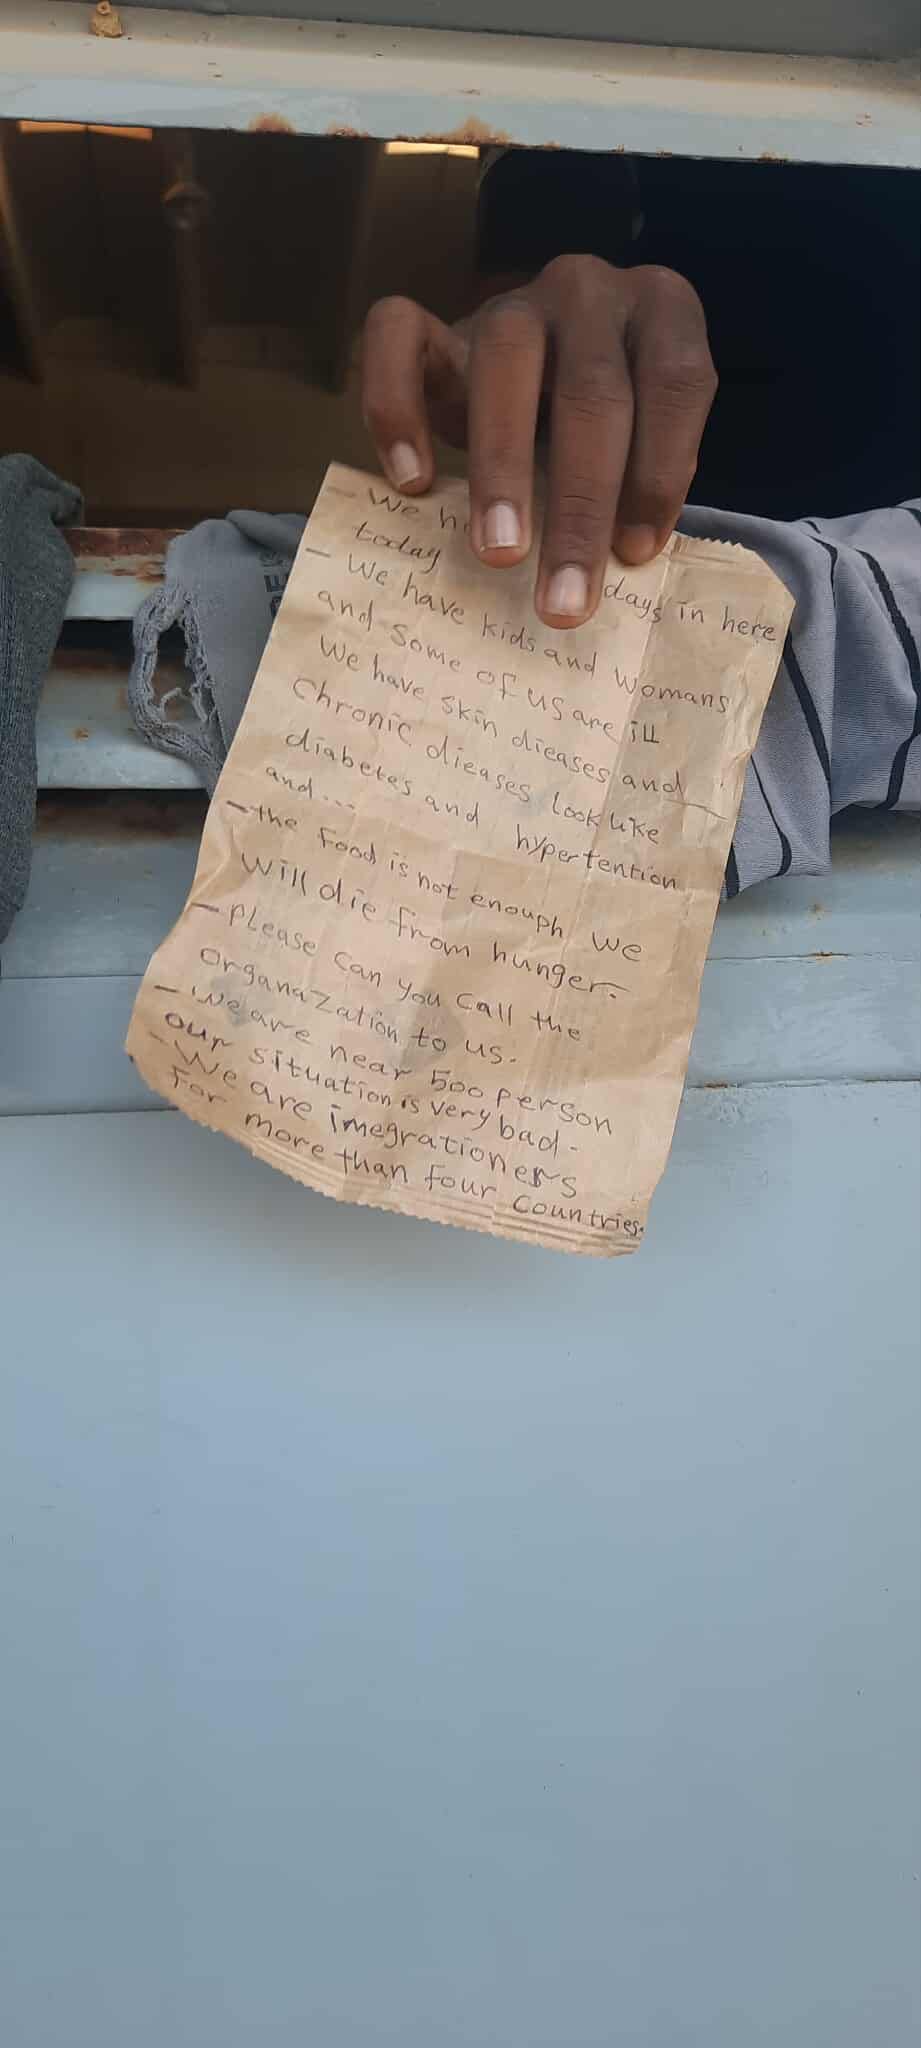 - We
today days in here
- We have kids and womans
and some of us are ill
We have skin dieases and
chronic dieases look like
diabetes and hypertention
and...
- the food is not enouph we
will die from hunger.
- please can you call the
organazation to us.
- We are near 500 person
our situation is very bad.
- We are imegrationers
for more than four countries.